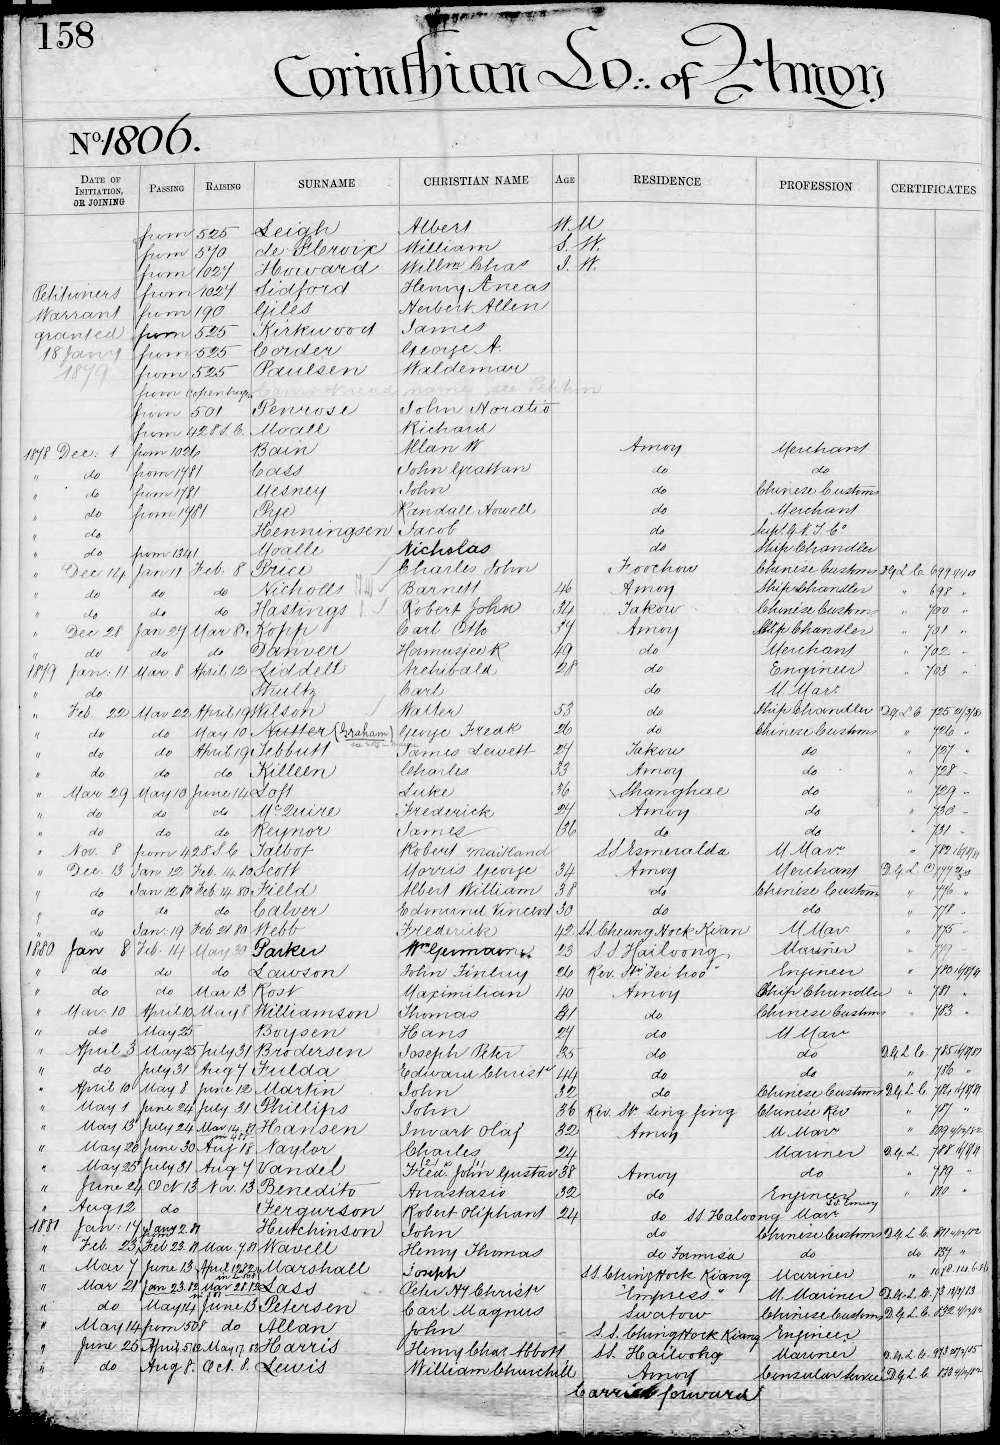 158
Corinthian Lo: of Amoy
No. 1806.
DATE OF INITIATION, OR JOINING PASSING RAISING SURNAME CHRISTIAN NAME AGE RESIDENCE PROFESSION CERTIFICATES
from 525 Leigh Albert W.M
from 570 de St Croix William S. W.
from 1027 Howard Willm Chas J. W.
Petitioners from 1027 Sidford Henry Æneas
Warrant from 190 Giles Herbert Allen
granted from 525 Kirkwood James
18 Jany from 525 Corder George A.
1879 from 525 Paulsen Waldemar
from Copenhagen Cannot read name see Petition
from 501 Penrose John Horatio
from 428 S.C. Moall Richard
1878 Dec: 1 from 1026 Bain Allan W Amoy Merchant
" do from 1781 Cass John Grattan do do
" do from 1781 Mesney John do Chinese Customs
" do from 1781 Pye Randall Howell do Merchant
" do Henningsen Jacob do Supt. G. N. T. Co
" do from 1341 Moalle Nicholas do Ship Chandler
" Dec 14 Jan 11 Feb. 8 Price Charles John Foochow Chinese Customs D.G.L.C. 699
" do do do Nicholls Barnett 46 Amoy Ship Chandler " 698 "
" do do do Hastings Robert John 34 Takow Chinese Customs " 700 "
" Dec 28 Jan 27 Mar 8 Kopp Carl Otto 37 Amoy Ship Chandler " 701 "
" do do do Danver Hormusjee R 49 do Merchant " 702 "
1879 Jan: 11 Mar 8 April 12 Liddell Archibald 28 do Engineer " 703 "
" do Shultz Carl do M. Mar.
" Feb. 22 Mar 22 April 19 Wilson Walter 53 do Ship Chandler D.G.L.C 725
" do do May 10 Nutter (Graham) George Fredk 26 do Chinese Customs " 726 "
" do do April 19 Tebbutt James Lewett 27 Takow do 727 "
" do do do Killeen Charles 33 Amoy do " 728 "
" Mar 29 May 10 June 14 Loft Luke 36 Shanghae do " 729 "
" do do do McQuire Frederick 27 Amoy do " 730 "
" do do do Reynor James 36 do do " 731 "
" Nov. 8 from 428 S.C Talbot Robert Maitland S.S Esmeralda M Mar. " 782
" Dec. 13 Jan 12 Feb. 14 80 Scott Morris George 34 Amoy Merchant D.G.L.C 777
" do Jan 12 80 Feb 14 80 Field Albert William 38 do Chinese Customs " 776 "
" do do do Calver Edmund Vincent 30 do do " 778 "
" do Jan. 19 Feb 21 80 Webb Frederick 42 S.S. Cheang Hock Kian M Mar. " 775 "
1880 Jan 8 Feb. 14 May 30 Parker Wm Germain 23 S.S Hailoong Mariner " 779 "
" do do do Lawson John Finlay 26 Rev. Str "Fei hoo" Engineer " 780
" do do Mar 13 Rost Maximilian 40 Amoy Ship Chandler " 781 "
" Mar. 10 April 10 May 8 Williamson Thomas 41 do Chinese Customs " 783 "
" do May 25 Boysen Hans 27 do M Mar
" April 3 May 25 July 31 Brodersen Joseph Peter 35 do do D.G.L.C. 785
" do July 31 Aug 7 Fulda Edward Christn 44 do do " 786 "
" April 10 May 8 June 12 Martin John 32 do Chinese Customs D.G.L.C. 784
" May 1 June 24 July 31 Phillips John 36 Rev. Str. Ling fing Chinese Rev " 787 "
" May 13 July 24 Mar 14. 81 Hansen Invart Olaf 32 Amoy M. Mar " 809
" May 20 June 30 Aug 18 Naylor Charles 24 Mariner D.G.L. 788
" May 25 July 31 Aug 7 Vandel Fred. John Gustav 38 Amoy do " 789 "
" June 24 Oct 13 Nov. 13 Benedito Anastasio 32 do Engineer " 810 "
" Aug 12 do Fergurson Robert Oliphant 24 do S.S Haloong Mar.
1881 Jan: 17 Jany 2. 81 Hutchinson John do Chinese Customs D.G.L.C. 811
" Feb. 23 Feb 23. 81 Mar. 7. 81 Wavell Henry Thomas do Formosa do do 837 "
" Mar 7 June 13 April 12 82 Marshall Joseph S.S. Ching Hock Kiang Mariner
" Mar 21 Jan 23. 82 Mar 28. 82 Lass Peter Hy Christn "Empress" M. Mariner D.G.L.C.
" do May 14 June 13 Petersen Carl Magnus Swatow Chinese Customs D.G.L.C. 832
" May 14 from 508 do Allan John S.S. Ching Hock Kiang Engineer
" June 25 Harris Henry Char Abbott S.S. Hailoong Mariner D.G.L.C. 973
" do Aug 8. Oct. 8. Lewis William Churchill Amoy Consular Service D.G.L.C 830
Carried forward